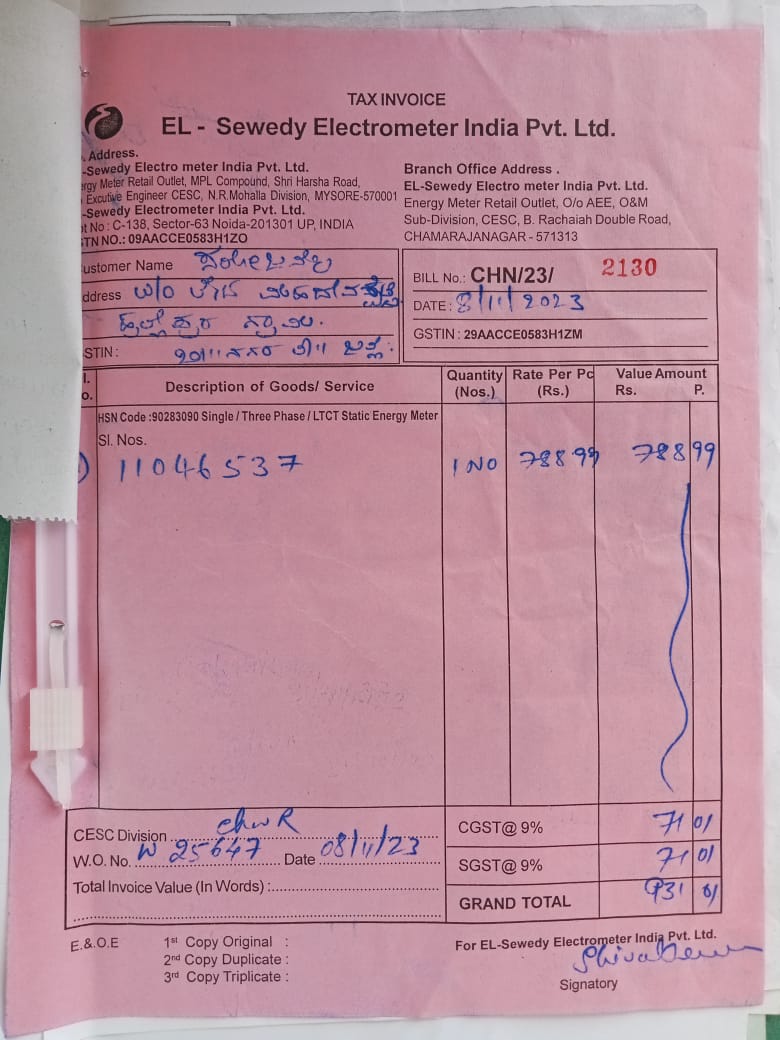 TAX INVOICE
EL - Sewedy Electrometer India Pvt. Ltd.
. Address.
-Sewedy Electro meter India Pvt. Ltd.
rgy Meter Retail Outlet, MPL Compound, Shri Harsha Road,
Excutive Engineer CESC, N.R.Mohalla Division, MYSORE-570001
-Sewedy Electrometer India Pvt. Ltd.
t No : C-138, Sector-63 Noida-201301 UP, INDIA
TN NO.: 09AACCE0583H1ZO
Branch Office Address .
EL-Sewedy Electro meter India Pvt. Ltd.
Energy Meter Retail Outlet, O/o AEE, O&M
Sub-Division, CESC, B. Rachaiah Double Road,
CHAMARAJANAGAR - 571313
ustomer Name
ddress W/O
ಗ್ರಾಮ.
STIN :
BILL No.: CHN/23/ 2130
DATE : 8/11/2023
GSTIN : 29AACCE0583H1ZM
l. Description of Goods/ Service Quantity Rate Per Pc Value Amount
o. (Nos.) (Rs.) Rs. P.
HSN Code :90283090 Single / Three Phase / LTCT Static Energy Meter
Sl. Nos.
) 11046537 1 NO 788 99 788 99
CESC Division
W.O. No. W 25647 Date 08/11/23
Total Invoice Value (In Words) :
CGST@ 9% 71 01
SGST@ 9% 71 01
GRAND TOTAL 931 01
E.& O.E 1st Copy Original :
2nd Copy Duplicate :
3rd Copy Triplicate :
For EL-Sewedy Electrometer India Pvt. Ltd.
Signatory